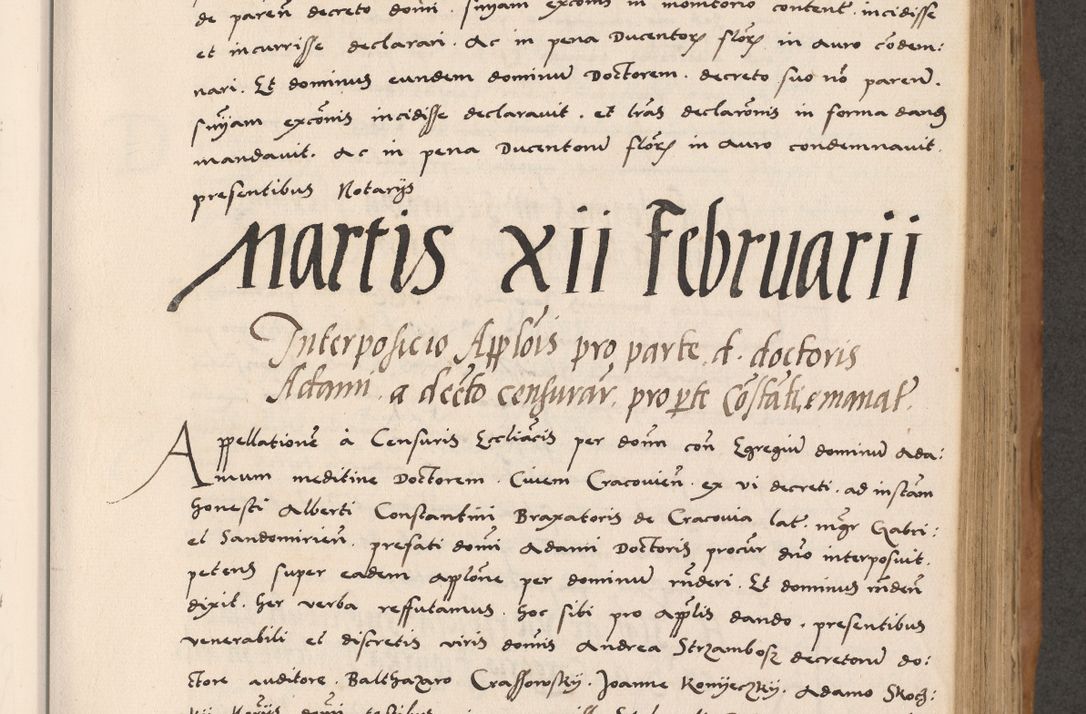 de pareñ decreto domi . sn̄iam excōnis in monitorio content̄ . incidisse
et incurrisse declarari . Ac in pena Ducentorꝝ florꝝ in auro cōdem:
nari . Et dominus eundem dominū Doctorem . decreto suo nō pareñ .
sn̄iam excōnis incidisse declaravit . et lr̄as declarōnis in forma dandꝭ
mandavit . Ac in pena Ducentorū florꝝ in auro condemnavit .
presentibus Notarijs
Martis xii Februarii
Interposicio Appl̄ois pro parte d . doctoris
Adami . a decr̄to censurar̄ . pro p̄te Cōstāti, emanat̄ .
Appellationē à Censuris Eccl̄iacis per dom̄ con̄ Egregiū dominū Ada:
mum meditine Doctorem . Civem Cracovieñ . ex vi decreti . ad instam̄
honesti Alberti Constantini Braxatoris de Cracovia lat̄ . mg̃r Gabri:
el Sandomirieñ . prefati domī Adami Doctoris procur̄ dn̄o interposuit .
petens super eadem appl̄one per dominū rn̄deri . Et dominus rn̄deñ
dixit . her verba reffutamus . hoc sibi pro appl̄is dando . presentibus
venerabili et discretis viris domīs Andrea Strzambosz decretorū do:
ctore auditore . Balthazaro Crassowskÿ . Joanne Konÿeczkÿ . Adamo Skoch: